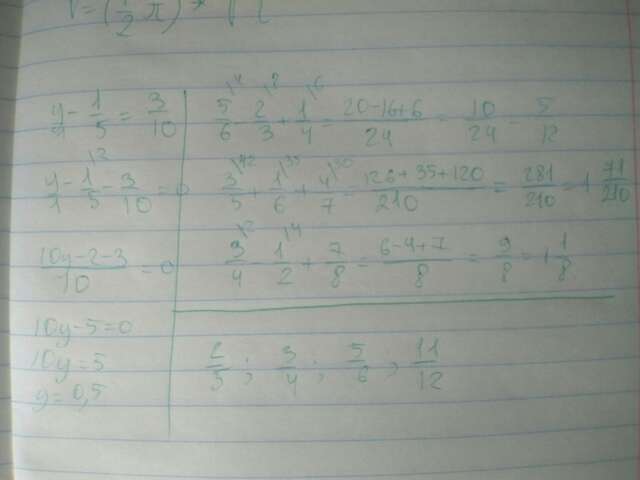 y/1 - 1/5 = 3/10
y/1 - 1/5 - 3/10 = 0
(10y-2-3)/10 = 0
10y-5=0
10y=5
y=0,5
5/6 - 2/3 + 1/4 = (20-16+6)/24 = 10/24 = 5/12
3/5 + 1/6 + 4/7 = (126+35+120)/210 = 281/210 = 1 71/210
3/4 - 1/2 + 7/8 = (6-4+7)/8 = 9/8 = 1 1/8
2/5 ; 3/4 ; 5/6 ; 11/12